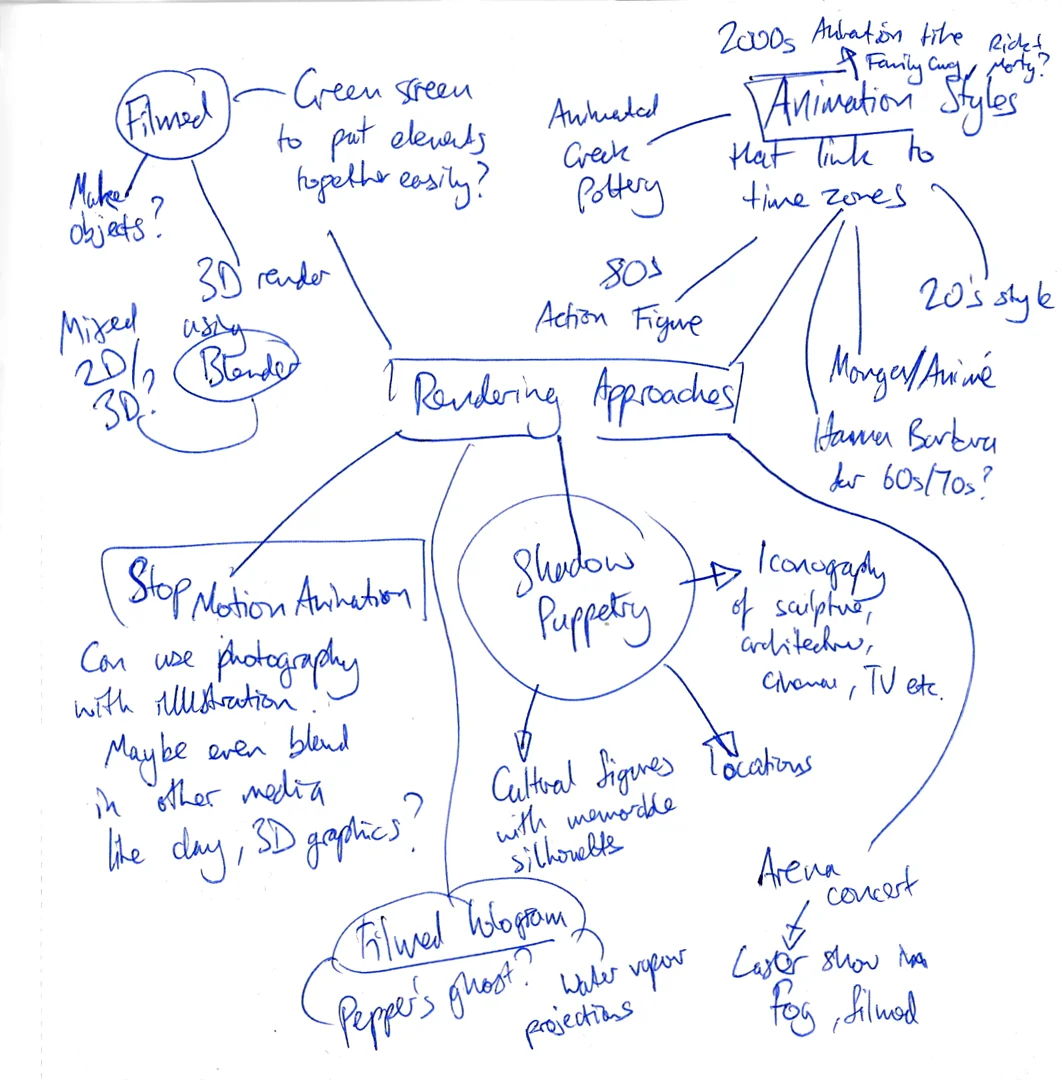 Filmed
Green screen
to put elements
together easily?
Make
objects?
3D render
using
Blender
Mixed
2D/
3D?
2000s Animation like
Family Guy, Rick &
Morty?
Animation Styles
that link to
time zones
Animated
Greek
Pottery
80s
Action Figure
20's style
Manga/Animé
Hanna Barbera
for 60s/70s?
Rendering Approaches
Stop Motion Animation
Can use photography
with illustration.
Maybe even blend
in other media
like clay, 3D graphics?
Shadow
Puppetry
Iconography
of sculpture,
architecture,
cinema, TV etc.
Cultural figures
with memorable
silhouettes
locations
Filmed hologram
Pepper's ghost?
Water vapour
projections
Arena
concert
Laser show in
fog, filmed